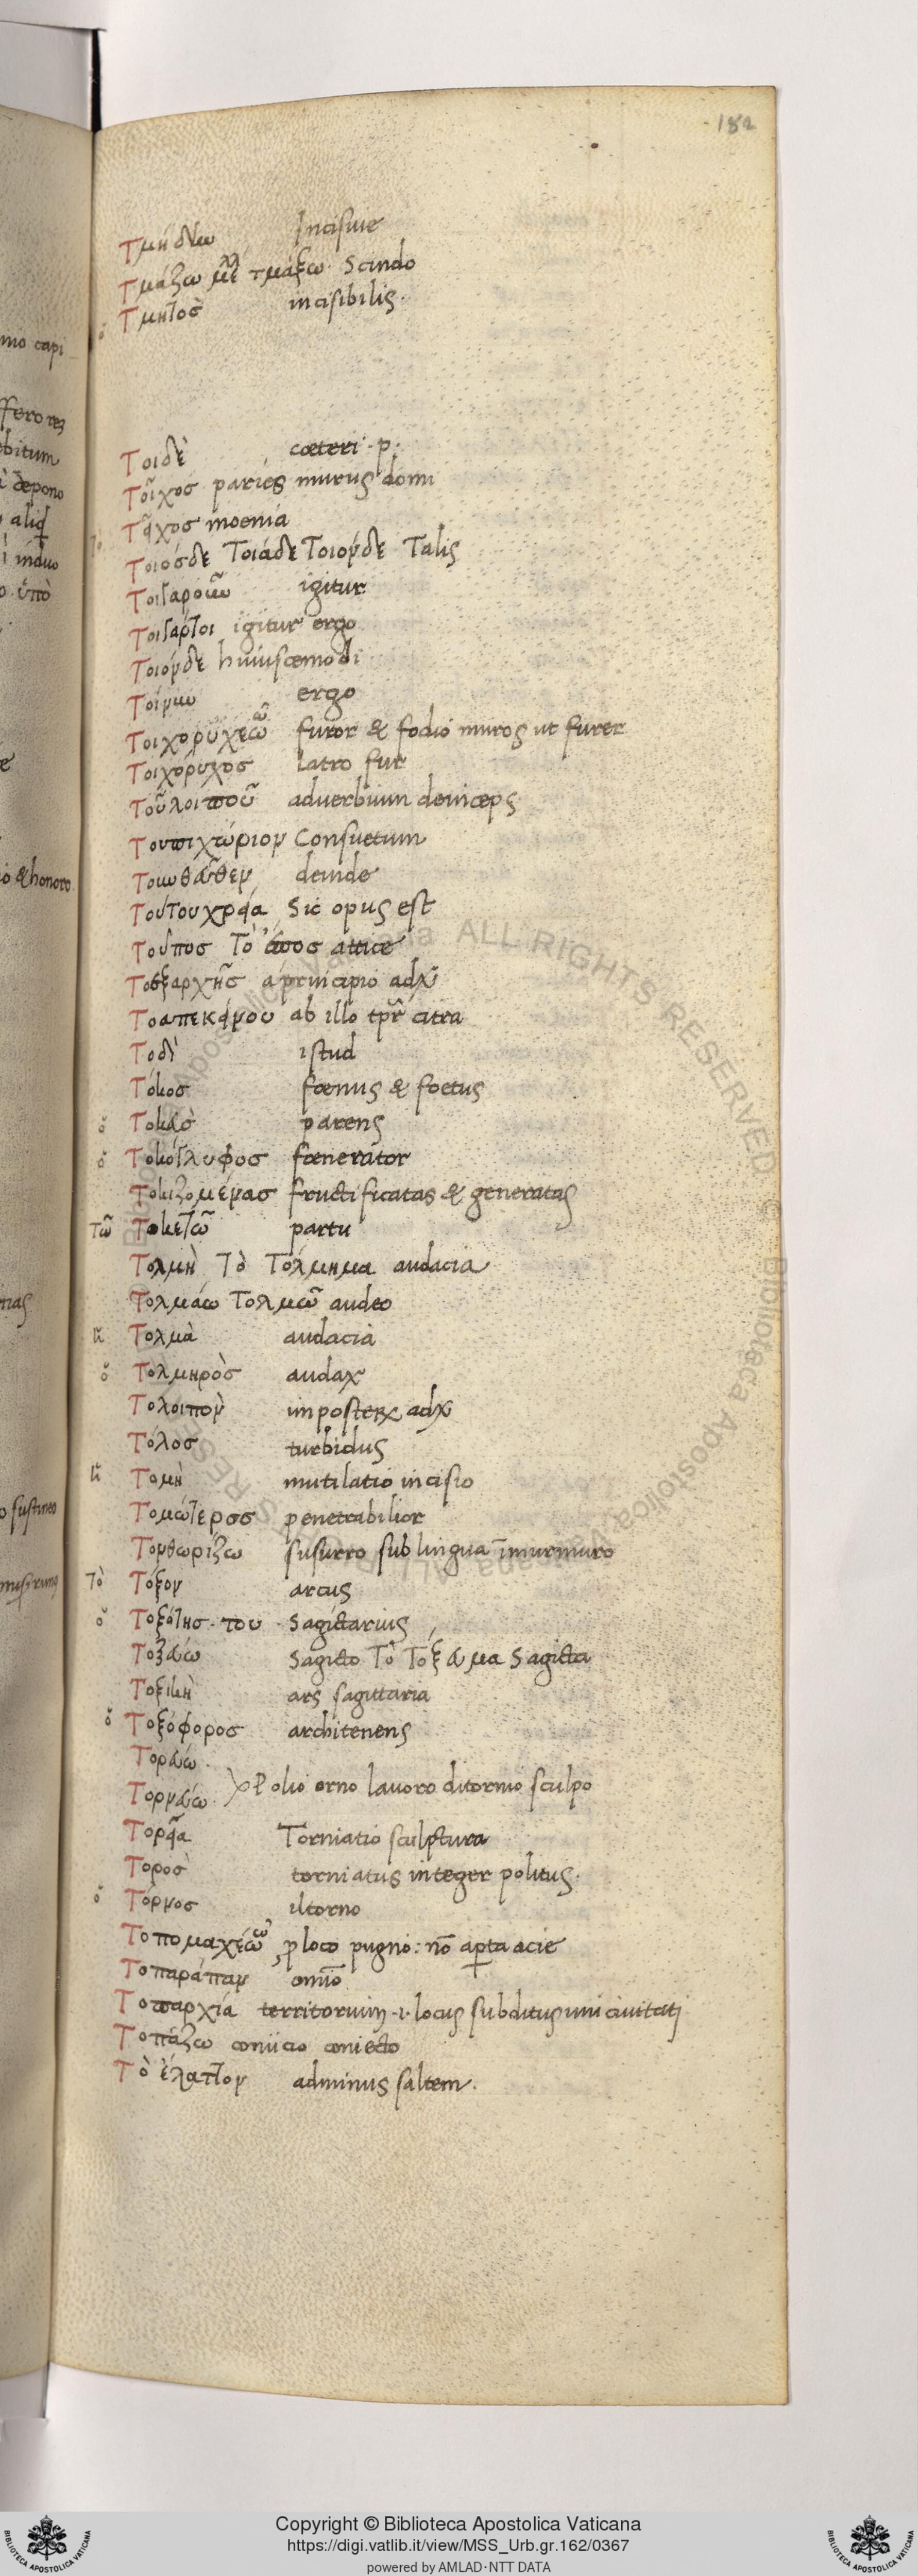 182
Τμήδην Incisive
Τμάζω μελλ τμάξω Scindo
ὁ Τμητὸς incisibilis.
Τοιδὲ cæteri .p.
Τοῖχος pariés murus domi
Τεῖχος moenia
Τοιόσδε Τοιάδε Τοιόνδε Talis
Τοιγαροῦν igitur
Τοιγάρτοι igitur ergo
Τοιόνδε huiuscemodi
Τοίνυν ergo
Τοιχορυχέω furor & fodio muros ut furer
Τοιχόρυχος Latro fur
Τοῦλοιποῦ adverbium deinceps
Τουπιχώριον Consuetum
deinde
Τούτουχρεία Sic opus est
Τοὔπος Τὸ ἔπος attice
Τοεξαρχῆς a principio adx
Τοαπεκείνου ab illo tpr citra
Τοδὶ istud
Τόκος fœnus & foetus
ὁ Τοκεὺς parens
ὁ Τοκογλύφος fœnerator
Τοκιζομένας fructificatas & generatas
τῶ Τοκετῶ partu
Τολμὴ Τὸ Τόλμημα audacia
Τολμάω Τολμῶ audeo
ἡ Τολμὰ audacia
ὁ Τολμηρὸς audax
Τολοιπὸν imposterx adx
Τόλος turbidus
ἡ Τομὴ mutilatio incisio
Τομώτερος penetrabilior
Τονθωρίζω susurro sub lingua īmurmuro
Τὸ Τόξον arcus
ὁ Τοξότης. του Sagittarius
Τοξεύω Sagitto Τὸ Τόξευμα Sagitta
Τοξικὴ ars sagittaria
ὁ Τοξόφορος architenens
Τορεύω.
Τορνεύω. Polio orno lavoro ditornio sculpo
Τορεία Torniatio sculptura
Τορος torniatus integer politus.
ὁ Τόρνος iltorno
Τοπομαχέω ꝓ loco pugno: nō aꝑta acie
Τοπαράπαν omīo
Τοπαρχία territorium .i. locus subditus uni civitati
Τοπάζω coniicio coniecto
Τὸ ἔλαττον adminus saltem.
mo capi
ffero res
ebitum
depono
aliq
induo
ὑπὸ
io & honoro
o sustineo
Copyright © Biblioteca Apostolica Vaticana
https://digi.vatlib.it/view/MSS_Urb.gr.162/0367
powered by AMLAD·NTT DATA